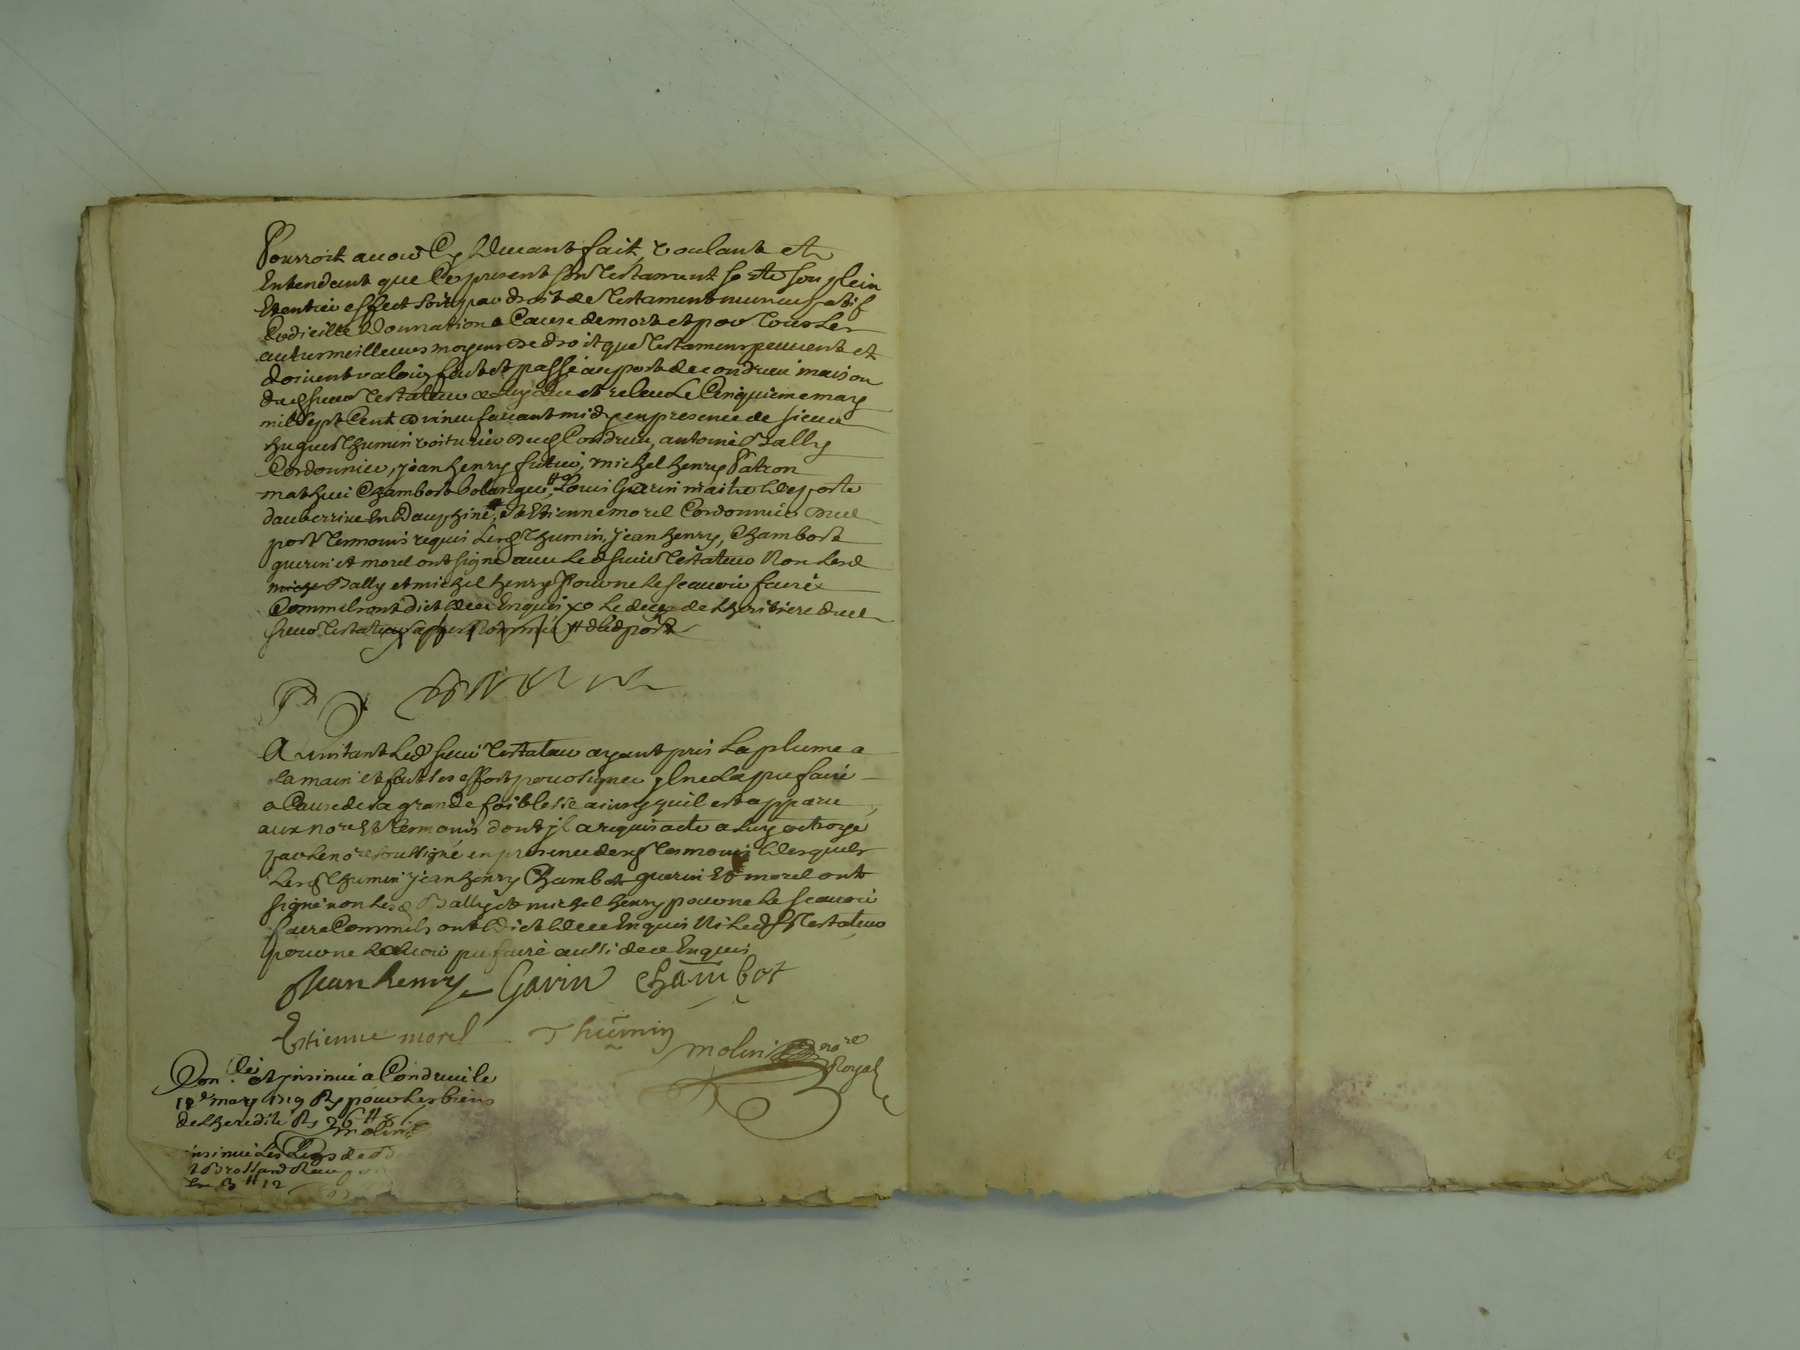 Pourroit avoir Cy devant fait, voulant et
Entendant que Ce present sien testament sorte son plein
Et entier effect soit par droit de testament nuncupatif
Codicille donnation a Cause de mort et par tous les
autres meilleures moyens de droit que testamens peuvent et
doivent valoir fait et passé au port de condrieu maison
dud sieur testateur le Cinquieme may
mil sept Cent dix neuf avant midy en presence de sieur
hugues thumin voiturier dud Condrieu, antoine Bally
Cordonnier, jean henry , michel henry Patron
mathieu Chambost bolanger, Louis Guerin maitre de poste
dauberrive En Dauphiné, et Etienne morel Cordonnier dud
port tesmoins requis Lesd thumin, jean henry, Chambost
guerin et morel ont signé avec led sieur testateur Non lesd
Bally et michel henry Pour ne le scavoir faire
Comme ils ont dict de ce Enquis de lheritiere dud
sieur testateur dud port
A linstant led sieur testateur ayant pris la plume a
la main et fait ses effort pour signer il ne la pu faire
a Cause de sa grande foiblesse ainsy quil est apparu
aux nore et tesmoins dont jl a requis acte a luy octroyé
par le nore soussigné en presence desd tesmoins desquels
Lesd thumin jean henry Chambost guerin Et morel ont
signé non lesd Bally et michel henry pour ne le scavoir
faire Comme ils ont dict de ce Enquis Ni led sr testateur
pour ne lavoir pu faire aussi de ce Enquis
Jean henry Garin Chambot
Estienne morel Thumin
molin nore
Royal
Conlle et insinué a Condrieu le
12e may 1719 R pour les biens
de lheredité R 26
molin
insinué Les Legs de